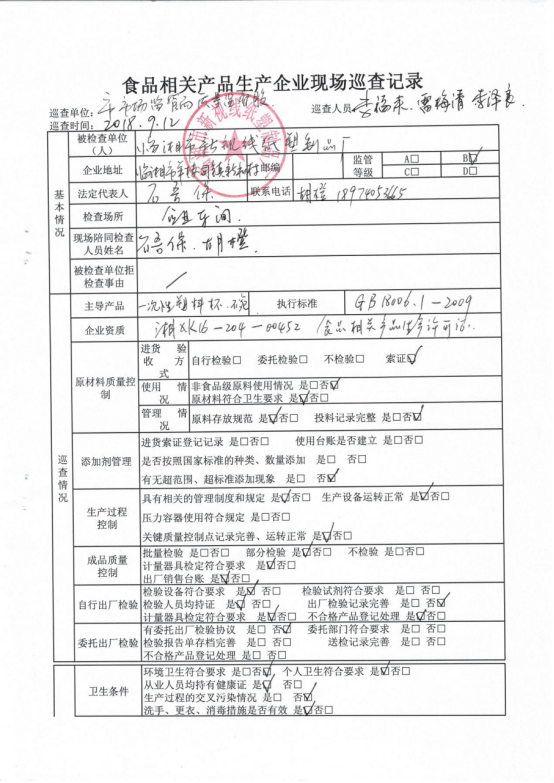 食品相关产品生产企业现场巡查记录
巡查单位: 市市场监管局 巡查人员 李海来、雷梅清 李泽良
巡查时间: 2018.9.12
基本情况
被检查单位(人) 临湘市新视线纸塑制品厂
企业地址 临湘市羊楼司镇新和村 邮编 监管等级 A□ B☑ C□ D□
法定代表人 石吾保 联系电话 胡橙 18974053665
检查场所 企业车间.
现场陪同检查人员姓名 石吾保、胡橙.
被检查单位拒检查事由 /
巡查情况
主导产品 一次性塑料杯、碗 执行标准 GB 18006.1-2009
企业资质 湘XK16-204-00452 食品相关产品生产许可证.
原材料质量控制
进货验收方式 自行检验□ 委托检验□ 不检验□ 索证☑
使用情况 非食品级原料使用情况 是□否☑
原材料符合卫生要求 是☑否□
管理情况 原料存放规范 是☑否□ 投料记录完整 是□否☑
添加剂管理
进货索证登记记录 是□否□ 使用台账是否建立 是□否□
是否按照国家标准的种类、数量添加 是□ 否□
有无超范围、超标准添加现象 是□ 否☑
生产过程控制
具有相关的管理制度和规定 是☑否□ 生产设备运转正常 是☑否□
压力容器使用符合规定 是□否□
关键质量控制点记录完善、运转正常 是☑否□
成品质量控制
批量检验 是□否□ 部分检验 是☑否□ 不检验 是□否□
计量器具检定符合要求 是☑否□
出厂销售台账 是☑否□
自行出厂检验
检验设备符合要求 是☑ 否□ 检验试剂符合要求 是□ 否□
检验人员均持证 是☑ 否□ 出厂检验记录完善 是□ 否☑
计量器具检定符合要求 是☑否□ 不合格产品登记处理 是☑否□
委托出厂检验
有委托出厂检验协议 是□ 否☑ 委托部门符合要求 是□ 否□
检验报告单存档完善 是□ 否□ 送检记录完善 是□ 否□
不合格产品登记处理 是□ 否□
卫生条件
环境卫生符合要求 是□否☑ 个人卫生符合要求 是☑否□
从业人员均持有健康证 是☑ 否□
生产过程的交叉污染情况 是□ 否☑
洗手、更衣、消毒措施是否有效 是☑否□